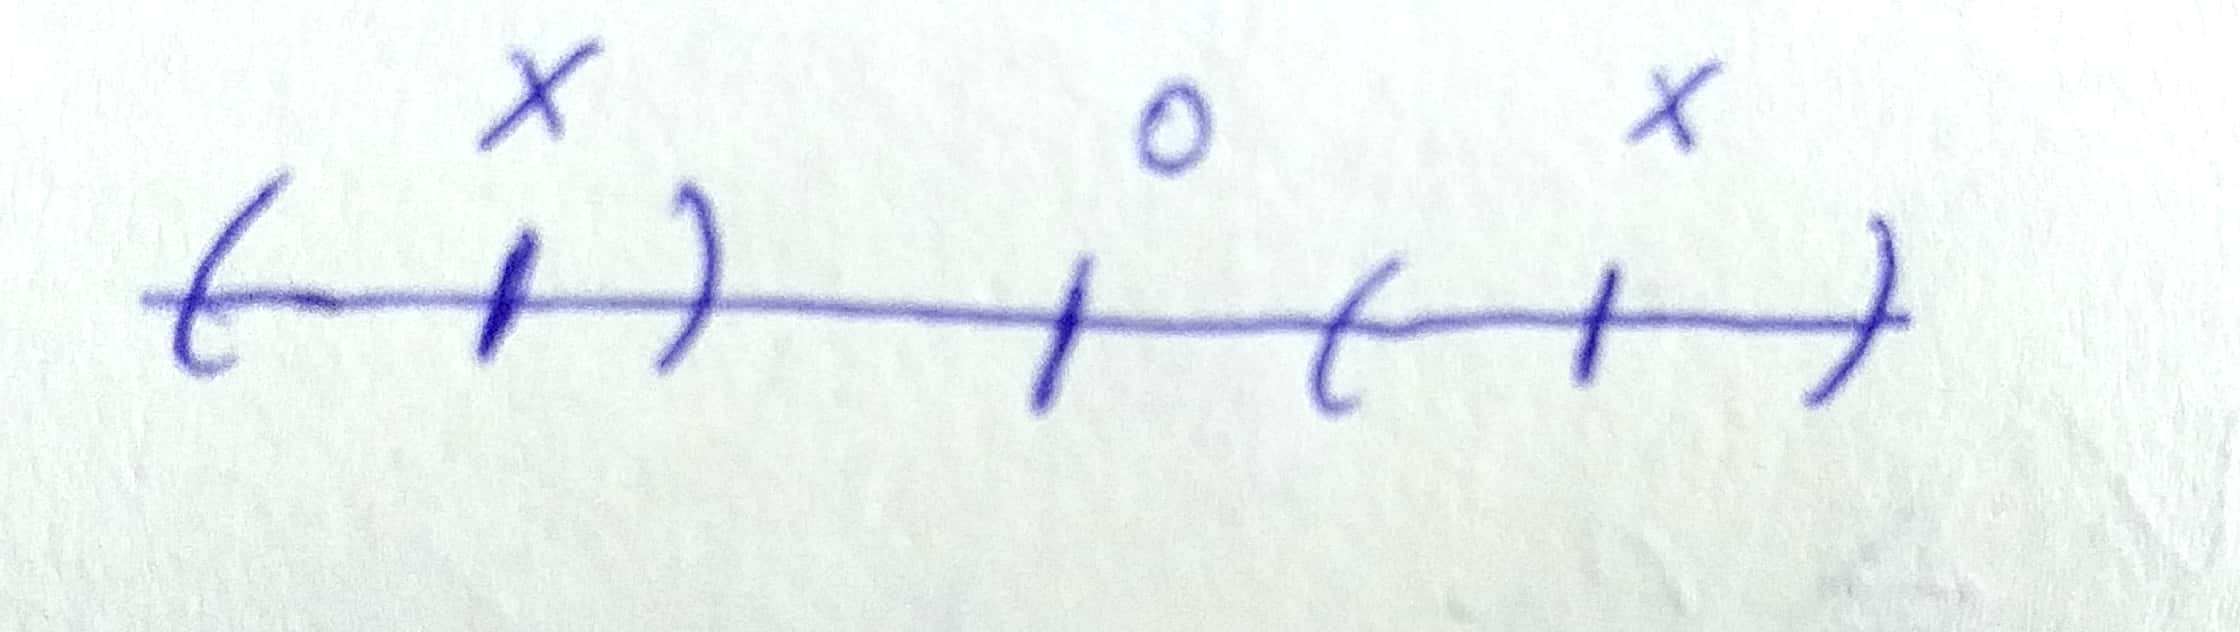 x 0 x
( | ) | ( | )